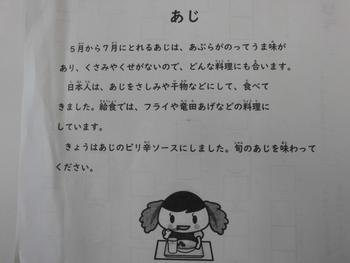 あじ
５月から７月にとれるあじは、あぶらがのってうま味が
あり、くさみやくせがないので、どんな料理にも合います。
日本人は、あじをさしみや干物などにして、食べて
きました。給食では、フライや竜田あげなどの料理に
しています。
きょうはあじのピリ辛ソースにしました。旬のあじを味わって
ください。